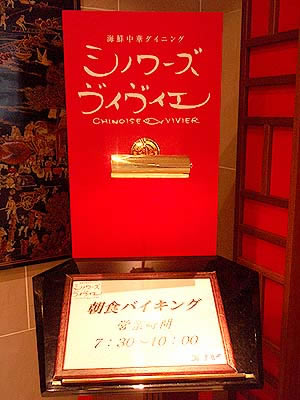 海鮮中華ダイニング
シノワーズ
ヴィヴィエ
CHINOISE VIVIER
シノワーズ
ヴィヴィエ
朝食バイキング
営業時間
7:30〜10:00